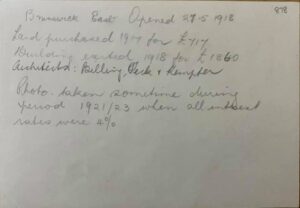 878
Brunswick East Opened 27.5.1918
Land purchased 1917 for £717
Building erected 1918 for £1860
Architects: Billing, Peck & Kempter
Photo. taken sometime during
period 1921/23 when all interest
rates were 4%